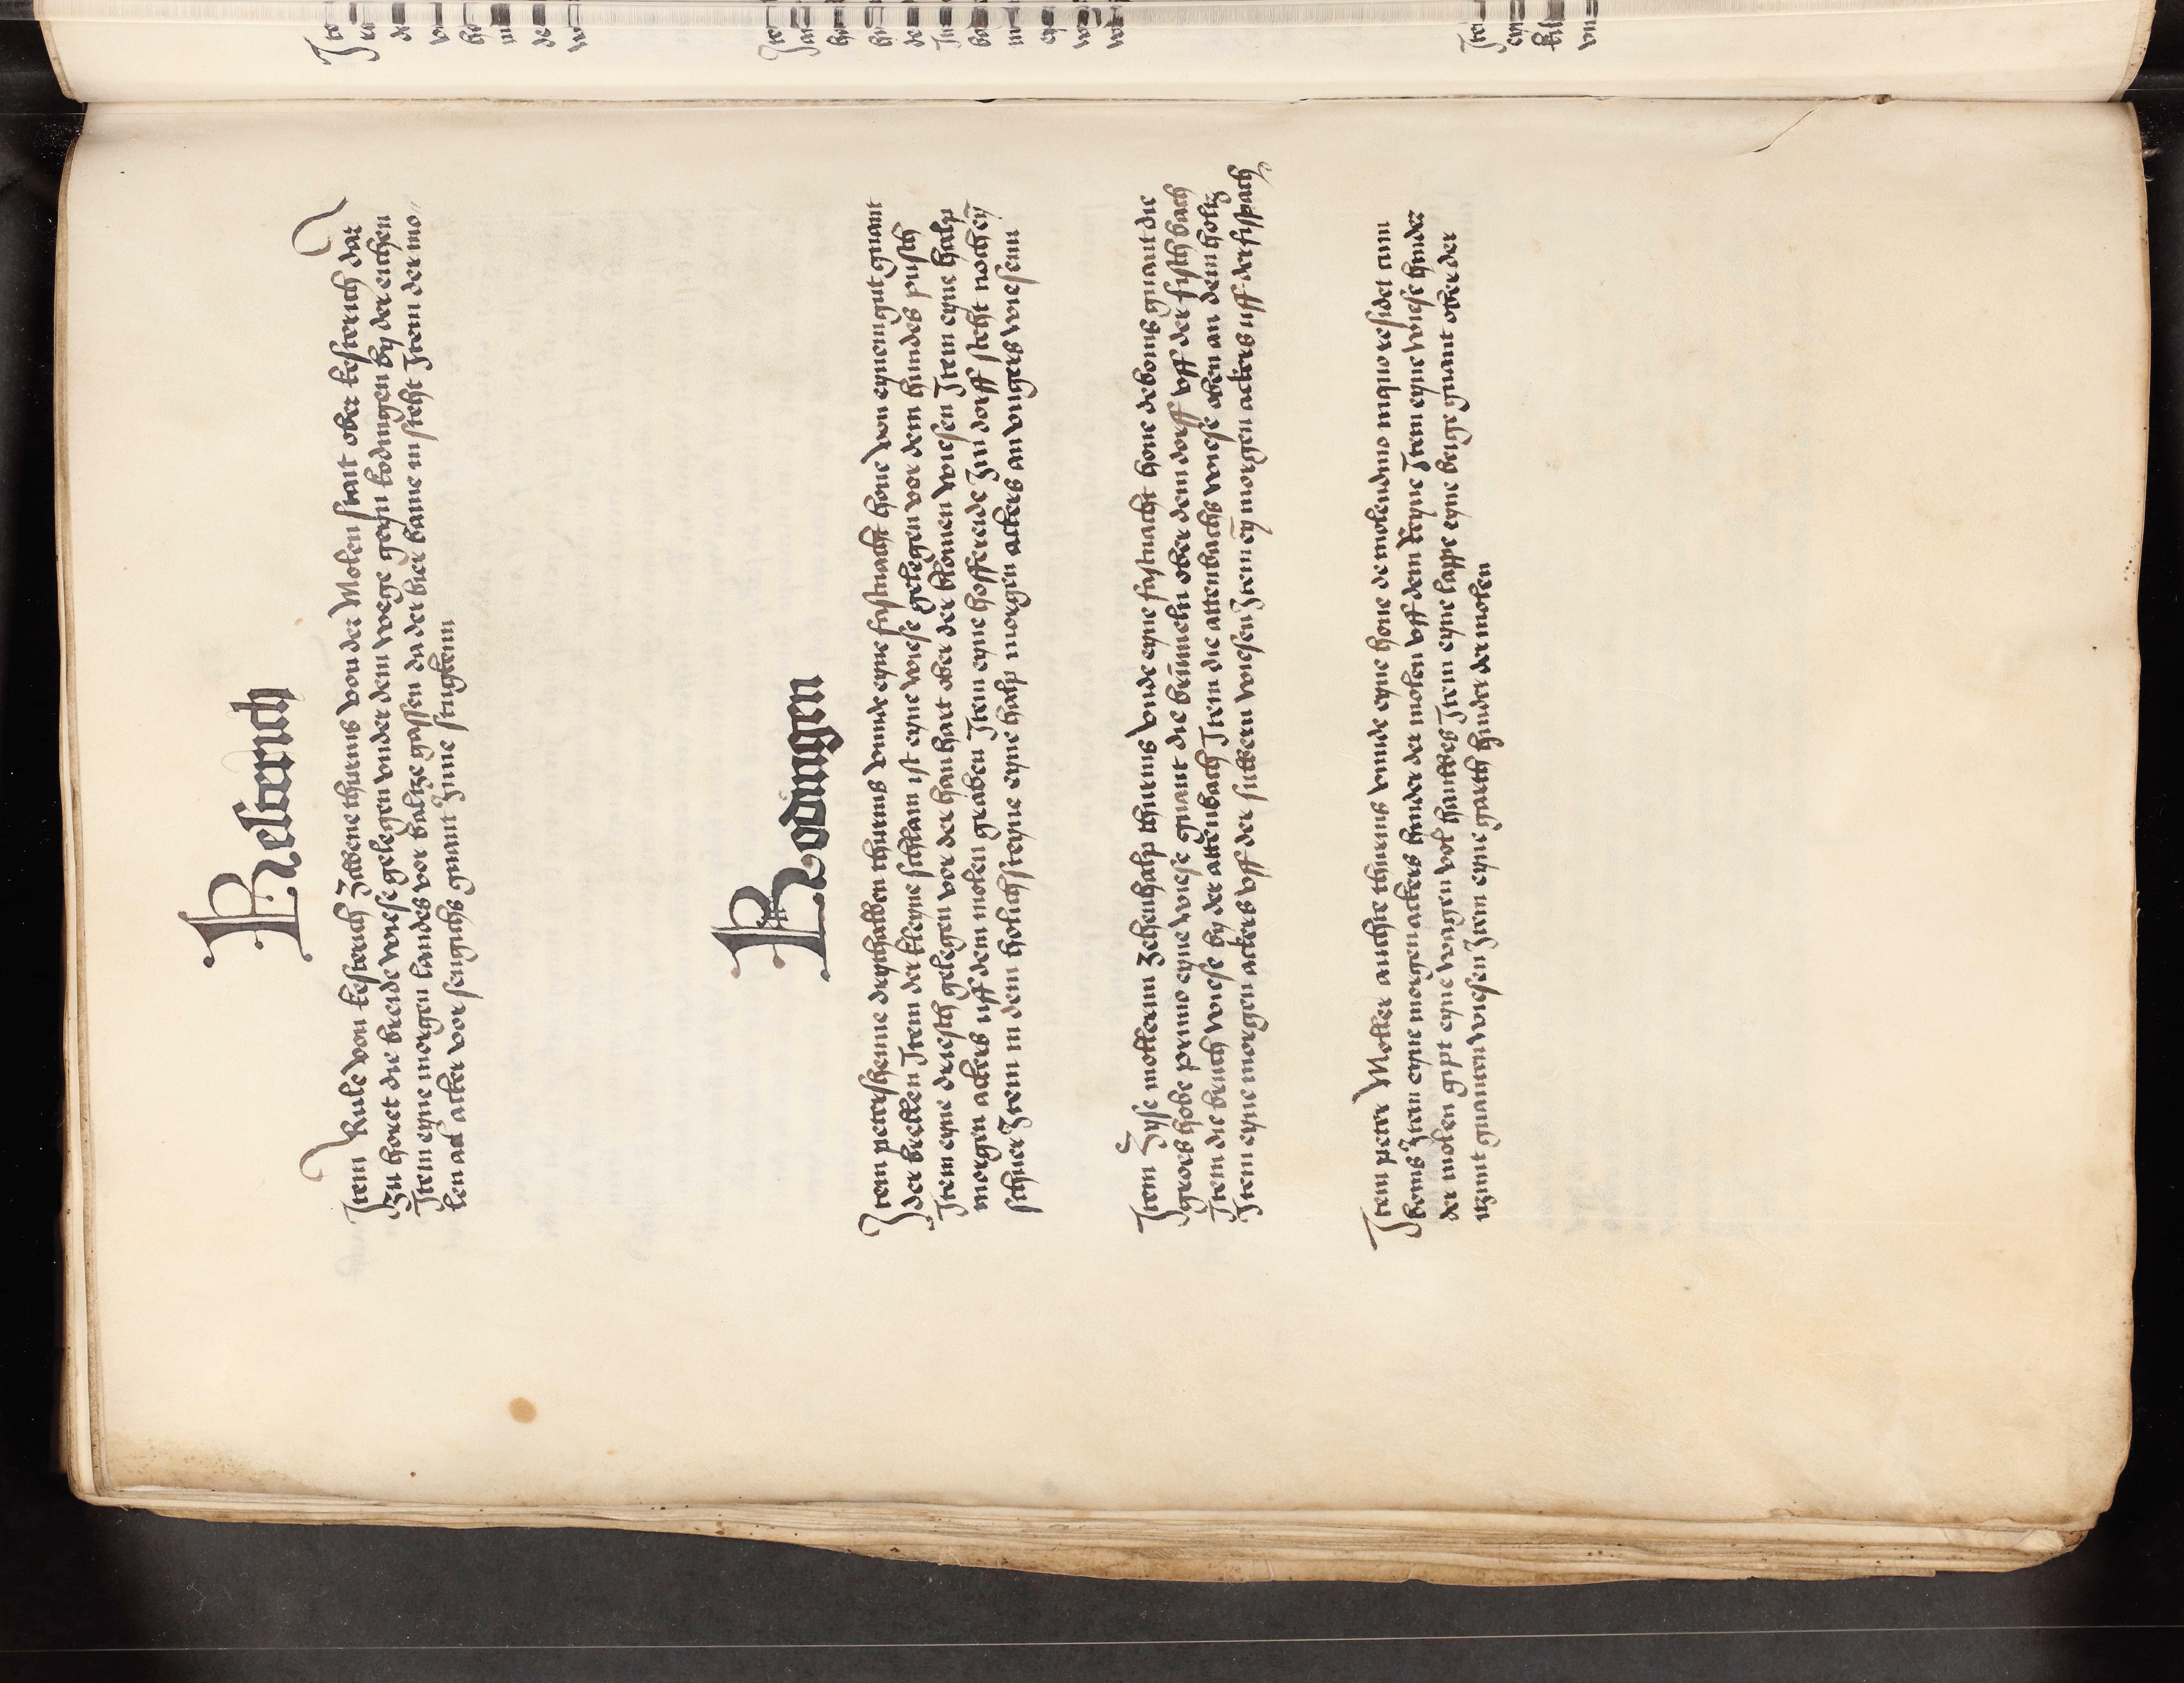 Kesterich
Item Rule von kesterich Zcebene thurnis von der Molen stait ober kesterich dar
zu horet die breide wiese gelegen vnder dem wege geyn bodingen by der eichen
Item eyne morgen landes vor baltze gassen da der bier bame in steht Item der mo
len ack acker vor sengichs gnant
Bodingen
Item peterschenne dryhalben thurnis vnnde eyne fastnacht hone von eynem gut gnant
der brellen Item der kleyne schlam ist eyne wiese gelegen vor dem hundes pusch
Item eyne driesch gelegen vor der hanhart ober der blomen wiesen Item eyne halp
morgen ackers uff dem molen graben Item eyne hoffereide Zu dorff steht noch eyn
schuer Item in dem holich steyne eyne halp morgen ackers an vngers wiesenn
Item Zyse mollerin Zehenhalp thurnis vnde eyne fastnacht hone de bonis gnant die
grois hobe primo eyne wiese gnant die brumeln ober dem dorff vff der fischbach
Item die bruch wiese by der attenbach Item die attenbachs wiese oben an dem holtz
Item eyne morgen ackers vff der sulbern wiesen Item eyn morgen ackers uff der fispach
Item peter Moller anchte thurnis vnnde eyne hone de molendino in quo residet cum
bonis Item eyne morgen ackers hinder der molen vff dem Reyne Item eyne wiese hinder
der molen gipt eyne wagen vol hauwes Item eyne lappe eyne beige gnant ober der
uzunt gnannen wiesen Item eyne garth hinder der molen